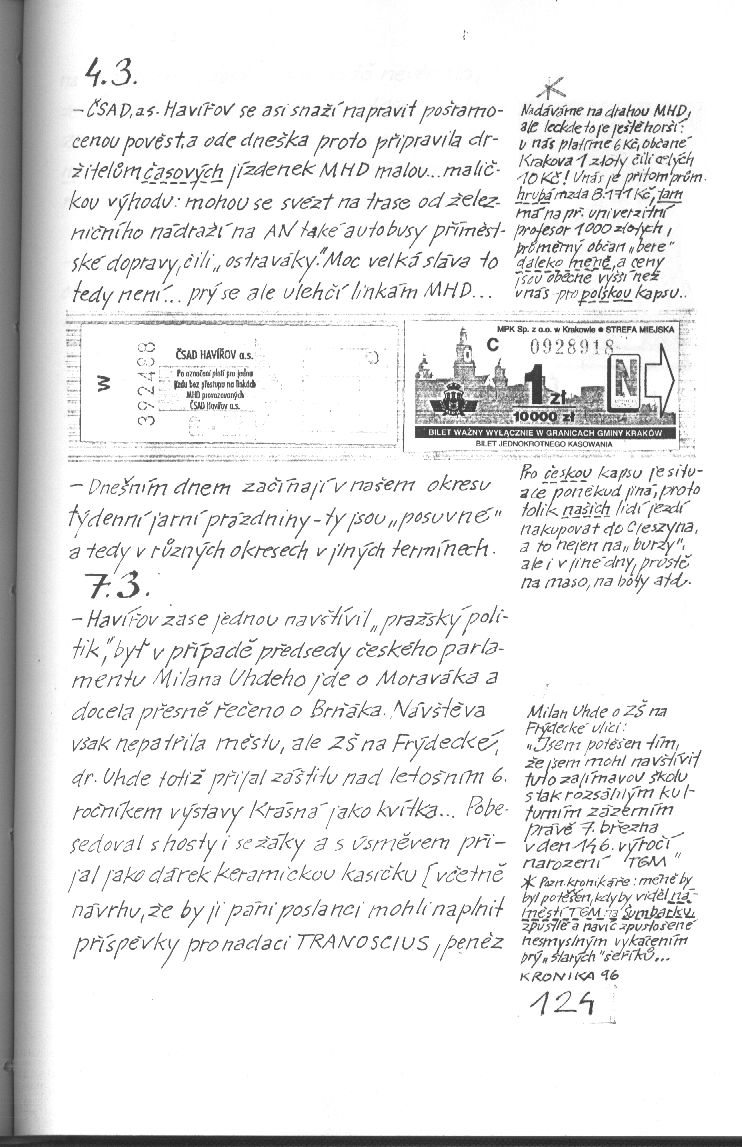 4.3.
– ČSAD, a.s. Havířov se asi snaží napravit pošramo-
cenou pověst, a ode dneška proto připravila dr-
žitelům časových jízdenek MHD malou... malič-
kou výhodu: mohou se svézt na trase od želez-
ničního nádraží na AN také autobusy příměst-
ské dopravy, čili „ostraváky." Moc velká sláva to
tedy není... prý se ale ulehčí linkám MHD...
Nadáváme na drahou MHD,
ale leckde to je ještě horší:
u nás platíme 6 Kč, občané
Krakova 1 zloty čili celých
10 Kč! U nás je přitom prům.
hrubá mzda 8.171 Kč, tam
má na př. univerzitní
profesor 1000 zlotých,
průměrný občan „bere"
daleko méně, a ceny
jsou obecně vyšší než
u nás - pro polskou kapsu..
W
392488
ČSAD HAVÍŘOV a.s.
Po označení platí pro jednu
jízdu bez přestupu na linkách
MHD provozovaných
ČSAD Havířov a.s.
MPK Sp. z o.o. w Krakowie ● STREFA MIEJSKA
C 0928918
1 zł
N
10000 zł
BILET WAŻNY WYŁĄCZNIE W GRANICACH GMINY KRAKÓW
BILET JEDNOKROTNEGO KASOWANIA
– Dnešním dnem začínají v našem okresu
týdenní jarní prázdniny - ty jsou „posuvné"
a tedy v různých okresech v jiných termínech.
Pro českou kapsu je situ-
ace poněkud jiná, proto
tolik našich lidí jezdí
nakupovat do Cieszyna,
a to nejen na „burzy",
ale i v jiné dny, prostě
na maso, na boty atd.
7.3.
– Havířov zase jednou navštívil „pražský poli-
tik," byť v případě předsedy českého parla-
mentu Milana Uhdeho jde o Moraváka a
docela přesně řečeno o Brňáka. Návštěva
však nepatřila městu, ale ZŠ na Frýdecké,
dr. Uhde totiž přijal záštitu nad letošním 6.
ročníkem výstavy Krásná jako kvítka... Pobe-
sedoval s hosty i se žáky a s úsměvem při-
jal jako dárek keramickou kasičku [včetně
návrhu, že by ji páni poslanci mohli naplnit
příspěvky pro nadaci TRANOSCIUS, peněz
Milan Uhde o ZŠ na
Frýdecké ulici:
„Jsem potěšen tím,
že jsem mohl navštívit
tuto zajímavou školu
s tak rozsáhlým kul-
turním zázemím
právě 7. března
v den 146. výročí
narození TGM"
* Pozn. kronikáře: méně by
byl potěšen, kdyby viděl ná-
městí TGM na Šumbarku,
zpustlé a navíc zpustošené
nesmyslným vykácením
prý „starých" šeříků...
KRONIKA 96
124